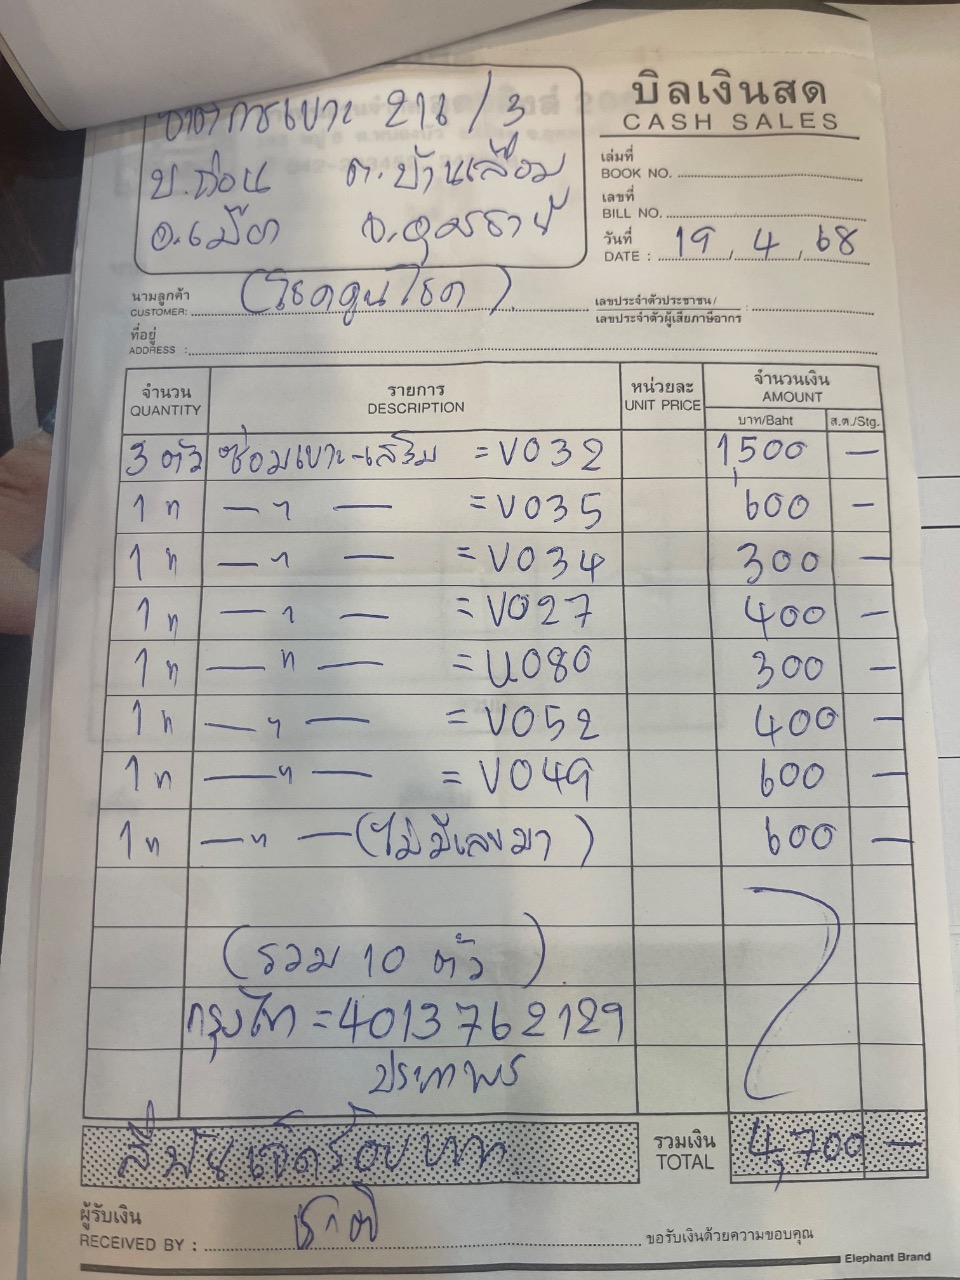 บิลเงินสด
CASH SALES
การเบาะ 216/3
ต.บ้านเลื่อม
อ.เมือง จ.อุดรธานี
เล่มที่
BOOK NO.
เลขที่
BILL NO.
วันที่ 19 / 4 / 68
DATE :
นามลูกค้า (โชคคูนโชค)
CUSTOMER:
เลขประจำตัวประชาชน/
เลขประจำตัวผู้เสียภาษีอากร :
ที่อยู่
ADDRESS :
จำนวน รายการ หน่วยละ จำนวนเงิน
QUANTITY DESCRIPTION UNIT PRICE AMOUNT
บาท/Baht ส.ต./Stg.
3 ตัว ซ่อมเบาะ-เสริม = V032 1,500 —
1 " — " — = V035 600 —
1 " — " — = V034 300 —
1 " — " — = V027 400 —
1 " — " — = U080 300 —
1 " — " — = V052 400 —
1 " — " — = V049 600 —
1 " — " — (ไม่มีเลขมา) 600 —
(รวม 10 ตัว)
กรุงไทย = 4013762129
ประภาพร
สี่พันเจ็ดร้อยบาท
รวมเงิน 4,700 —
TOTAL
ผู้รับเงิน
RECEIVED BY :
ขอรับเงินด้วยความขอบคุณ
Elephant Brand